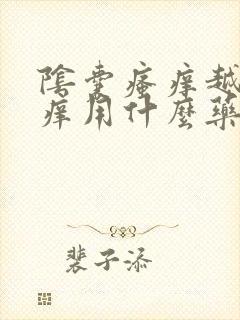 陰囊瘙癢越
癢用什麼藥
裴子添